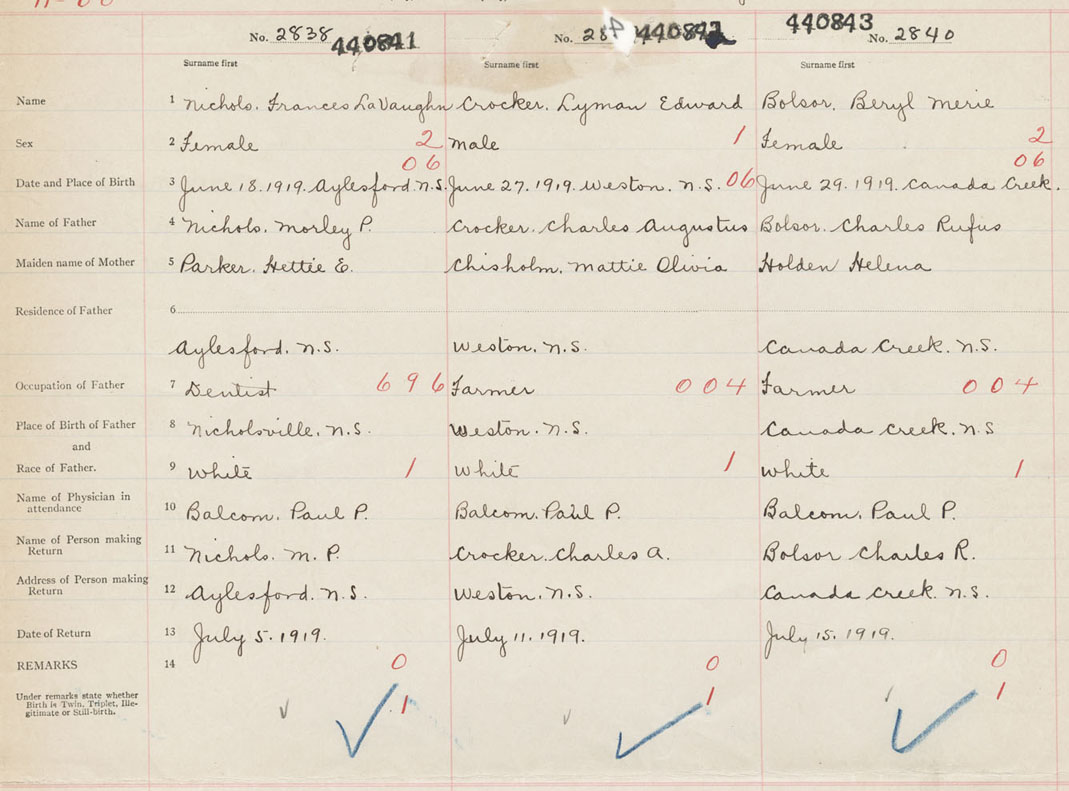 No. 2838 440841 No. 28 440842 440843 No. 2840
Surname first Surname first Surname first
Name 1 Nichols. Frances LaVaughn Crocker. Lyman Edward Bolsor. Beryl Merie
Sex 2 Female 2 Male 1 Female 2
06 06
Date and Place of Birth 3 June 18. 1919. Aylesford. N.S. June 27. 1919. Weston. N.S. 06 June 29. 1919. Canada Creek.
Name of Father 4 Nichols. Morley P. Crocker. Charles Augustus Bolsor. Charles Rufus
Maiden name of Mother 5 Parker. Hettie E. Chisholm. Mattie Olivia Holden Helena
Residence of Father 6
Aylesford. N.S. Weston. N.S. Canada Creek. N.S.
Occupation of Father 7 Dentist 696 Farmer 004 Farmer 004
Place of Birth of Father 8 Nicholsville. N.S. Weston. N.S. Canada Creek. N.S
and
Race of Father. 9 White 1 White 1 White 1
Name of Physician in
attendance 10 Balcom. Paul P. Balcom. Paul P. Balcom. Paul P.
Name of Person making
Return 11 Nichols. M. P. Crocker. Charles A. Bolsor Charles R.
Address of Person making
Return 12 Aylesford. N.S. Weston. N.S. Canada Creek. N.S.
Date of Return 13 July 5. 1919. July 11. 1919. July 15. 1919.
REMARKS 14 0 0 0
Under remarks state whether
Birth is Twin, Triplet, Ille-
gitimate or Still-birth. 1 1 1